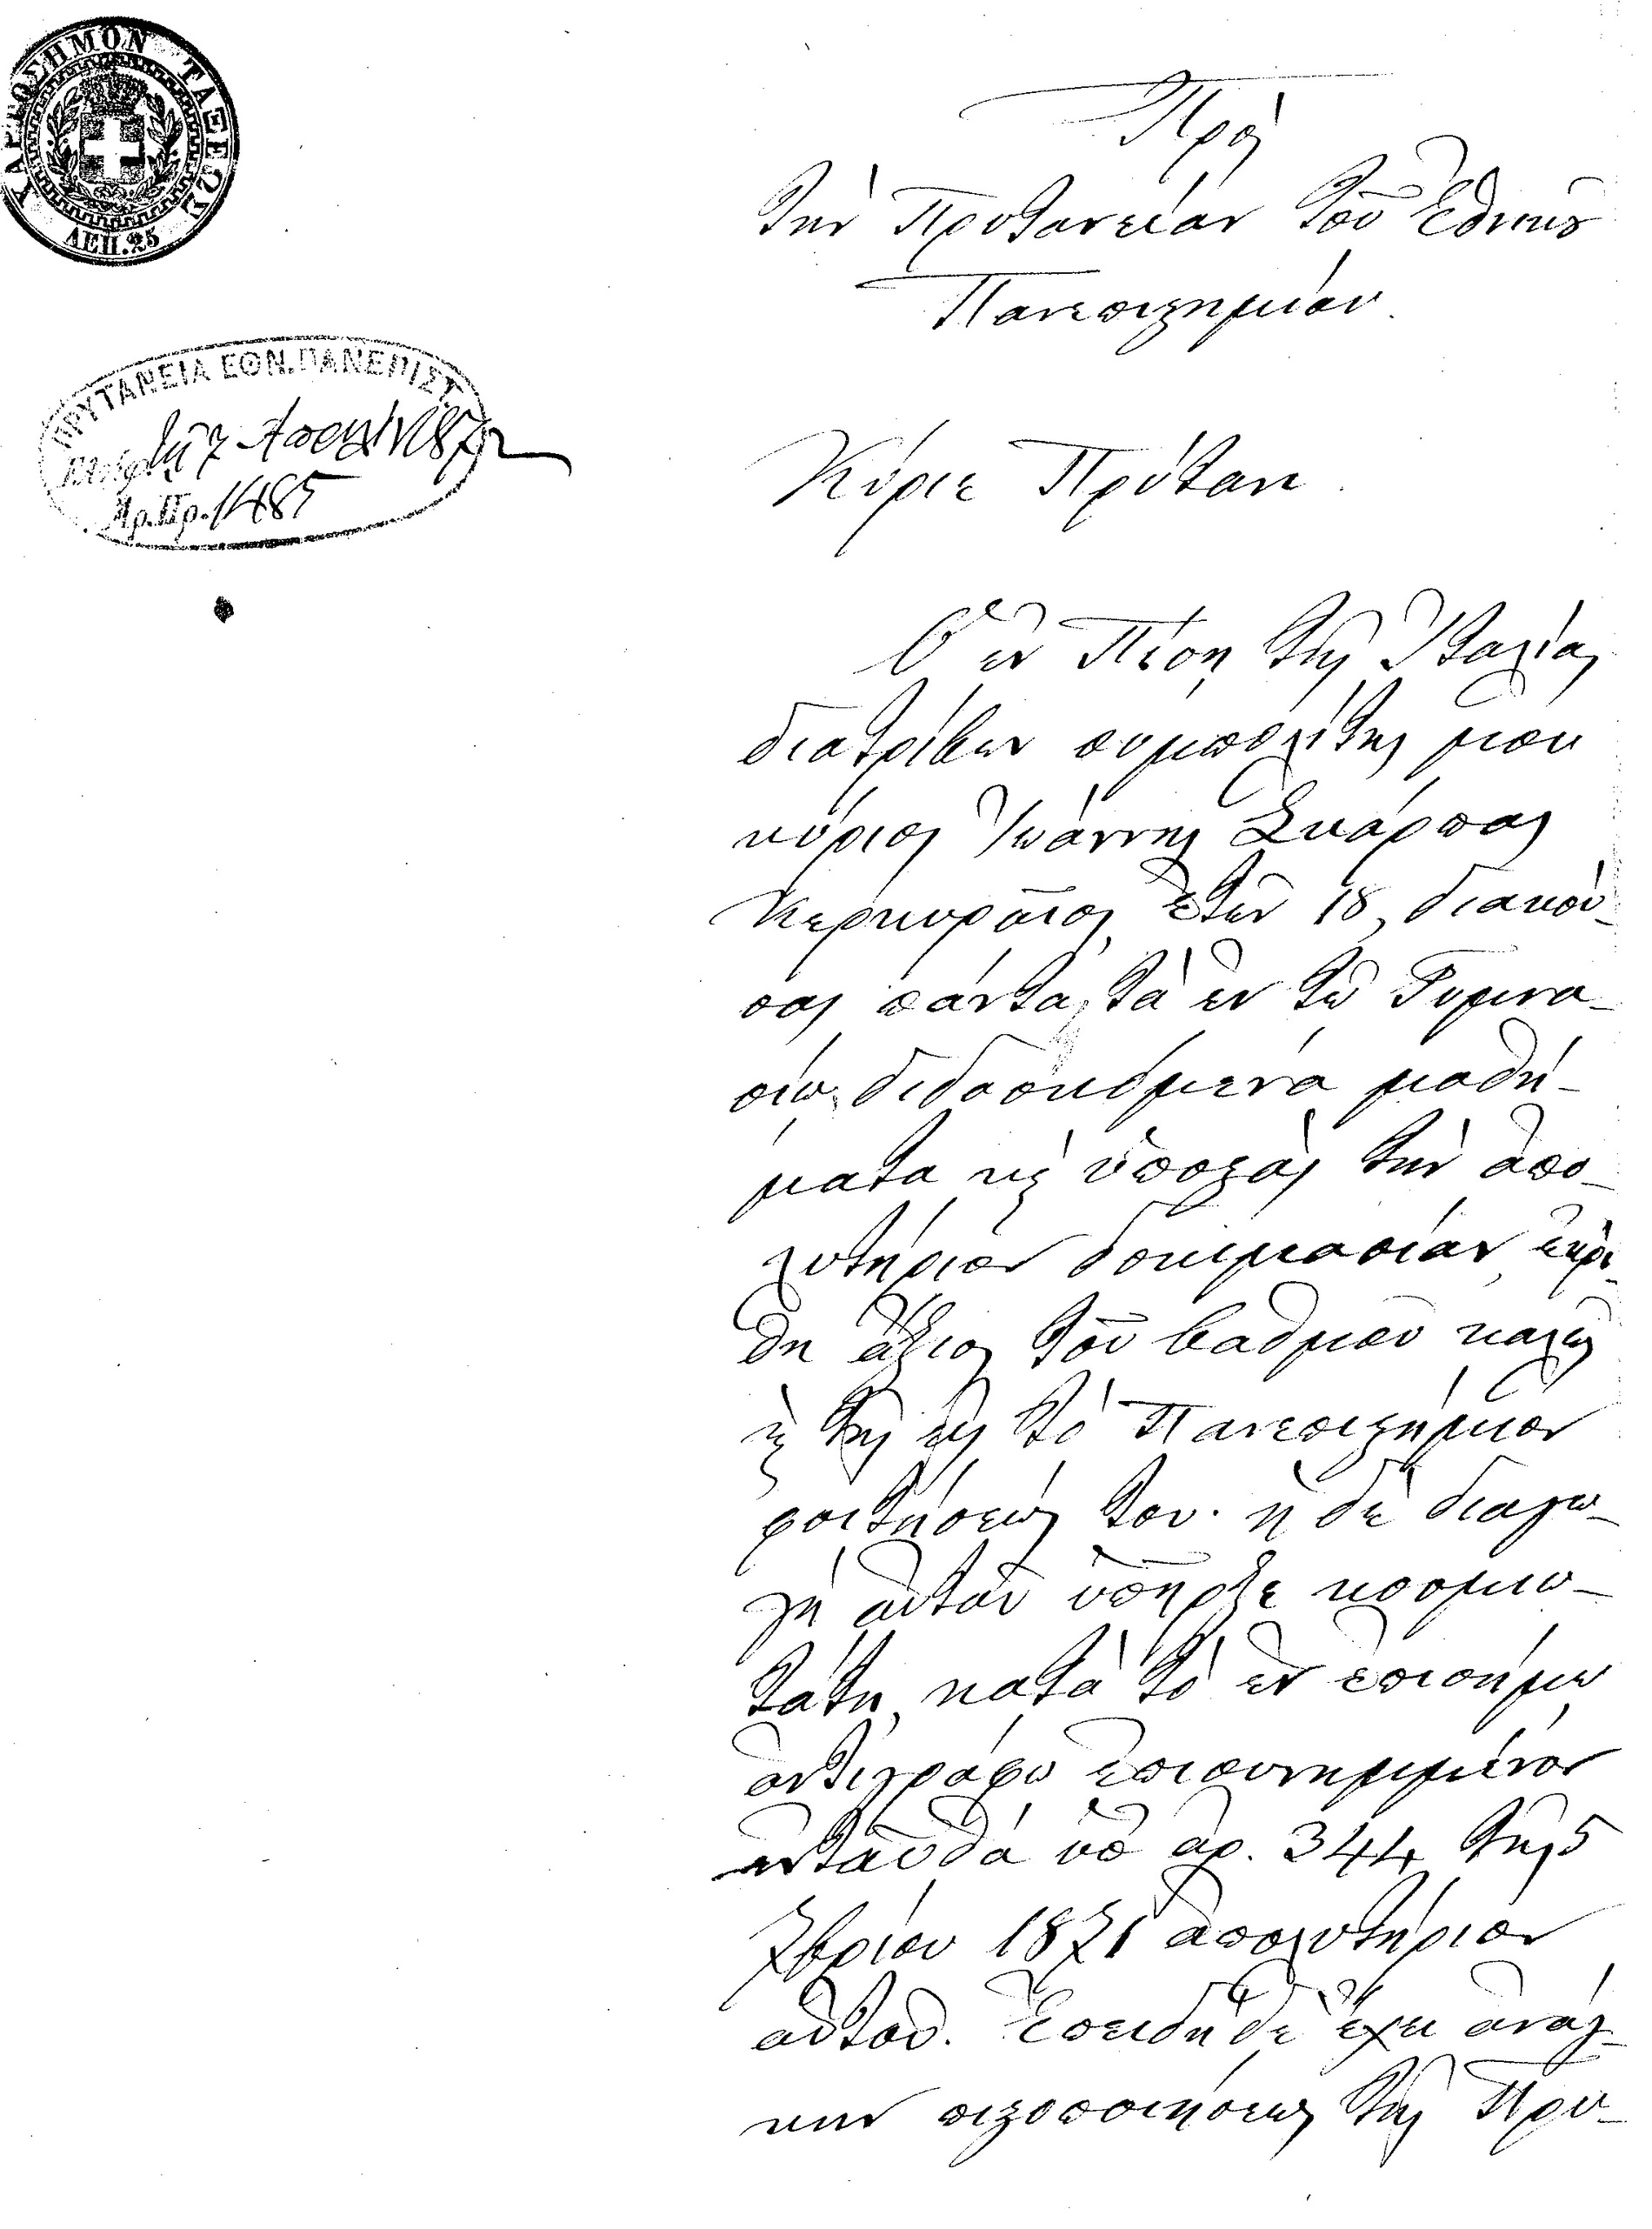 ΧΑΡΤΟΣΗΜΟΝ ΤΑΞΕΩΣ
ΛΕΠ. 25
Πρὸς
τὴν Πρυτανείαν τοῦ Ἐθνικοῦ
Πανεπιστημίου.
ΠΡΥΤΑΝΕΙΑ ΕΘΝ. ΠΑΝΕΠΙΣΤ.
τῇ 7 Ἀπριλ 1872
Ἀρ. Πρ. 1485
Κύριε Πρύτανι.
Ὁ ἐν Πίσῃ τῆς Ἰταλίας
διατρίβων συμπολίτης μου
κύριος Ἰωάννης Σκάρπας
Κερκυραῖος, ἐτῶν 18, διακού-
σας πάντα τὰ ἐν τῷ Γυμνα-
σίῳ διδασκόμενα μαθή-
ματα κ ὑποστὰς τὴν ἀπο-
λυτήριον δοκιμασίαν, ἐκρί-
θη ἄξιος τοῦ βαθμοῦ καλῶς
κ τῆς εἰς τὸ Πανεπιστήμιον
φοιτήσεώς του· ἡ δὲ διαγω-
γὴ αὐτοῦ ὑπῆρξε κοσμιω-
τάτη, κατὰ τὸ ἐν ἐπισήμῳ
ἀντιγράφῳ ἐπισυνημμένον
ἐνταῦθα ὑπ ἀρ. 344 τῆς 5
7βρίου 1871 ἀπολυτήριον
αὐτοῦ. Ἐπειδὴ δὲ ἔχει ἀνάγ-
κην πιστοποιήσεως τῆς Πρυ-